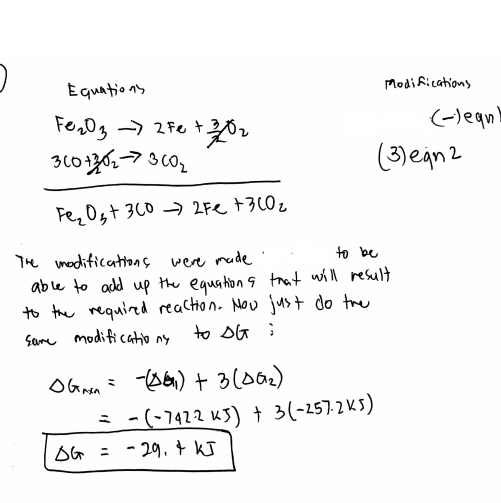 Equations Modifications
Fe₂O₃ → 2Fe + 3/2 O₂ (-)eqn1
3CO + 3/2 O₂ → 3CO₂ (3)eqn2
Fe₂O₃ + 3CO → 2Fe + 3CO₂
The modifications were made to be
able to add up the equations that will result
to the required reaction. Now just do the
same modifications to ΔG :
ΔGrxn = -(ΔG₁) + 3(ΔG₂)
= -(-742.2 kJ) + 3(-257.2 kJ)
ΔG = -29.4 kJ